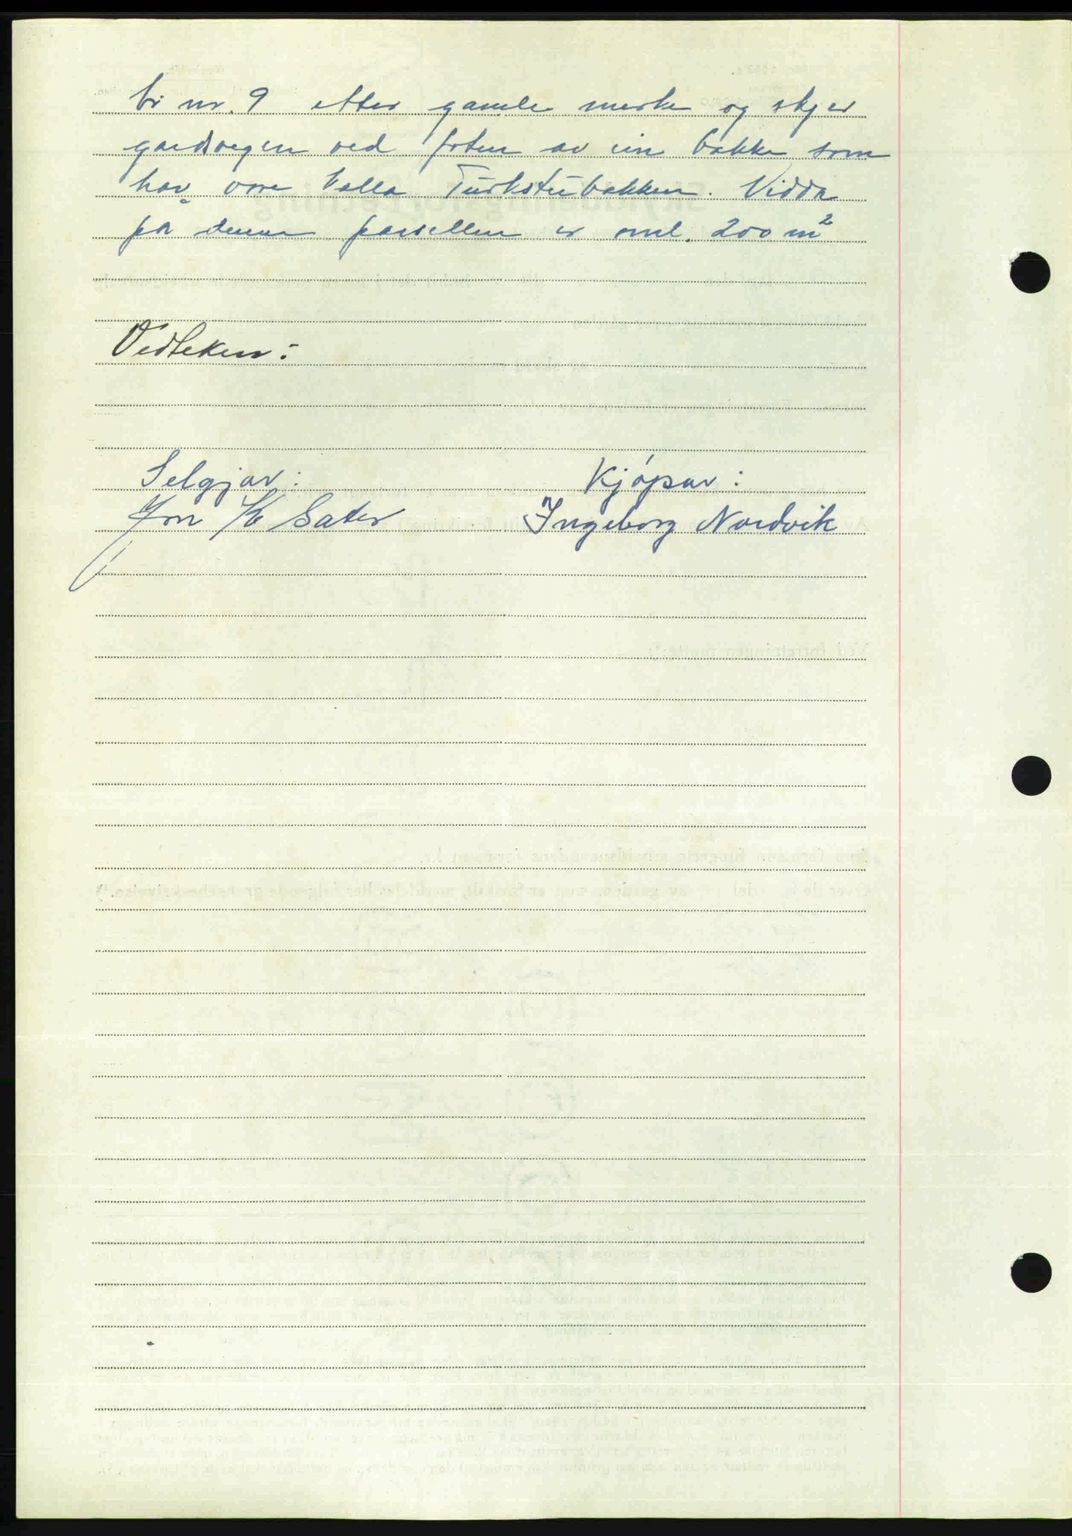 br nr. 9 etter gamle merke og skjer
gardsvegen ved foten av ein bakke som
har vore kalla Turkstubakken. Vidda
på denne parsellen er oml. 200 m²
Vedteken:
Selgjar: Kjøpar:
Jon K Sæter Ingeborg Nordvik